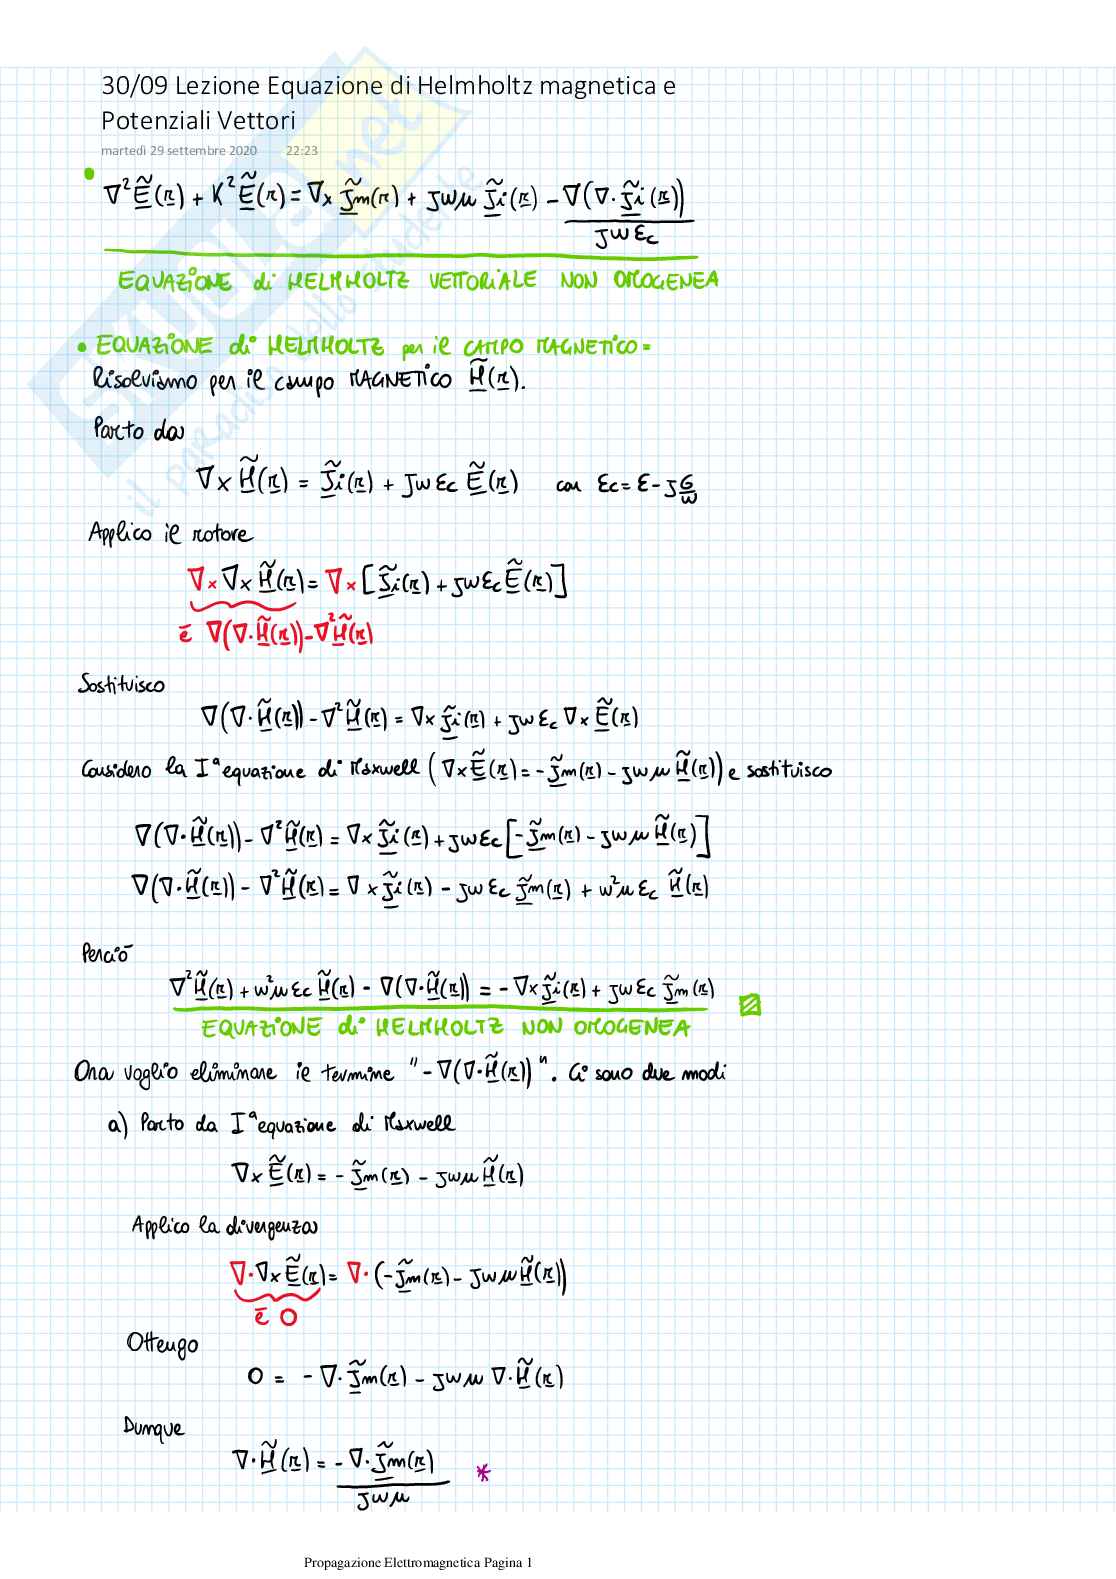 30/09 Lezione Equazione di Helmholtz magnetica e
Potenziali Vettori
martedì 29 settembre 2020 22:23
• ∇²Ẽ(r) + K²Ẽ(r) = ∇× J̃m(r) + jωμ J̃i(r) - ∇(∇·J̃i(r)) / jωεc
EQUAZIONE di HELMHOLTZ VETTORIALE NON OMOGENEA
• EQUAZIONE di HELMHOLTZ per il CAMPO MAGNETICO =
Risolviamo per il campo MAGNETICO H̃(r).
Parto da
∇× H̃(r) = J̃i(r) + jωεc Ẽ(r) con εc = ε - j σ/ω
Applico il rotore
∇×∇× H̃(r) = ∇× [J̃i(r) + jωεc Ẽ(r)]
è ∇(∇·H̃(r)) - ∇²H̃(r)
Sostituisco
∇(∇·H̃(r)) - ∇²H̃(r) = ∇× J̃i(r) + jωεc ∇× Ẽ(r)
Considero la Iª equazione di Maxwell (∇× Ẽ(r) = - J̃m(r) - jωμ H̃(r)) e sostituisco
∇(∇·H̃(r)) - ∇²H̃(r) = ∇× J̃i(r) + jωεc [- J̃m(r) - jωμ H̃(r)]
∇(∇·H̃(r)) - ∇²H̃(r) = ∇× J̃i(r) - jωεc J̃m(r) + ω²μεc H̃(r)
Perciò
∇²H̃(r) + ω²μεc H̃(r) - ∇(∇·H̃(r)) = - ∇× J̃i(r) + jωεc J̃m(r)
EQUAZIONE di HELMHOLTZ NON OMOGENEA
Ora voglio eliminare il termine "- ∇(∇·H̃(r))". Ci sono due modi
a) Parto da Iª equazione di Maxwell
∇× Ẽ(r) = - J̃m(r) - jωμ H̃(r)
Applico la divergenza
∇·∇× Ẽ(r) = ∇· (- J̃m(r) - jωμ H̃(r))
è 0
Ottengo
0 = - ∇· J̃m(r) - jωμ ∇· H̃(r)
Dunque
∇· H̃(r) = - ∇· J̃m(r) / jωμ *
Propagazione Elettromagnetica Pagina 1